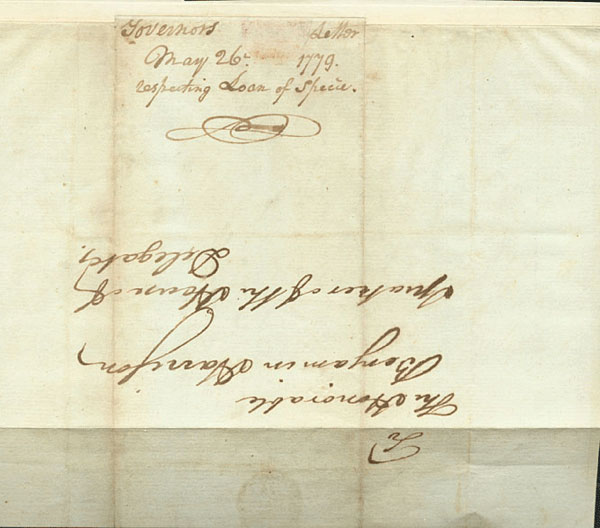 Governors Letter
May 26. 1779.
respecting Loan of Specie.
To
The Honorable
Benjamin Harrison
Speaker of the House of
Delegates.